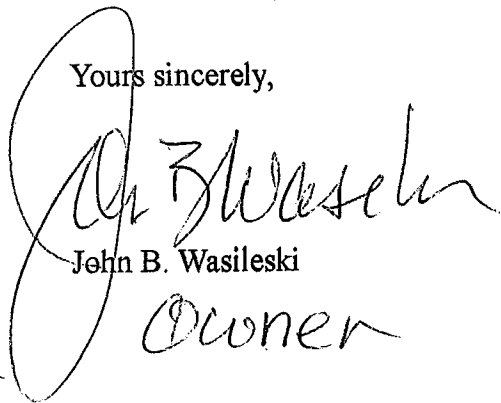 Yours sincerely,
John B Wasileski
John B. Wasileski
Owner